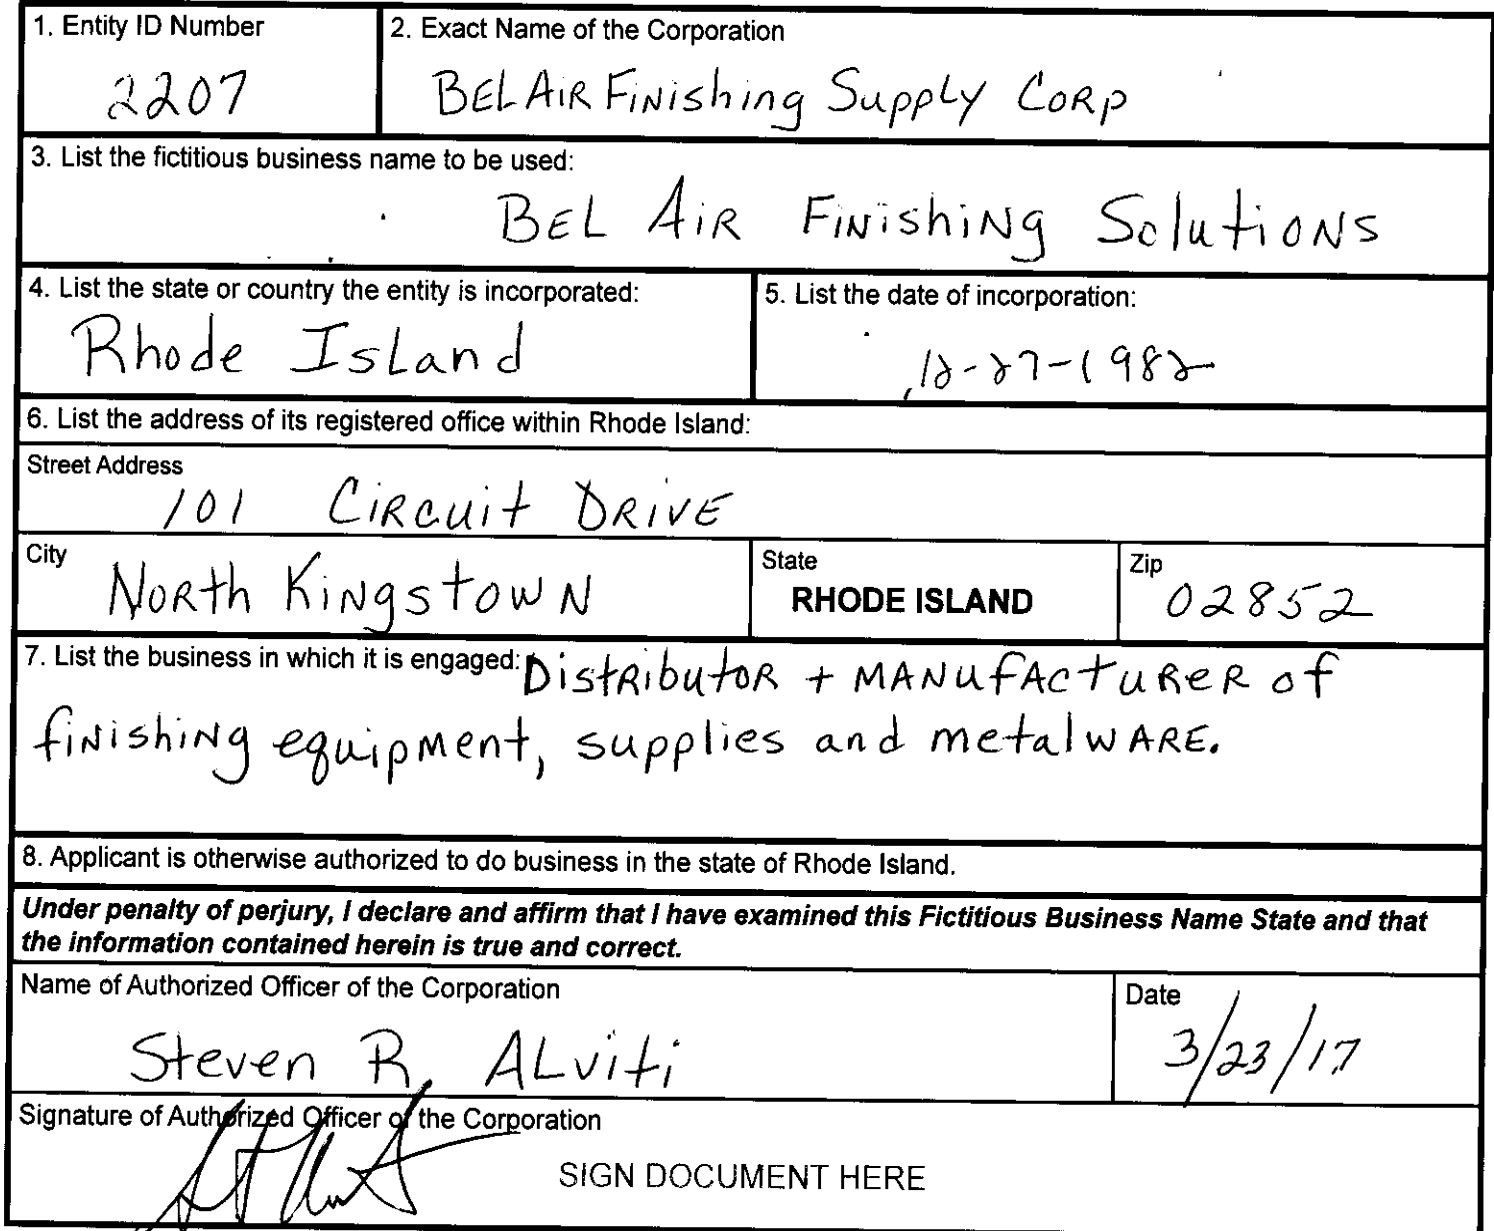 1. Entity ID Number
2207
2. Exact Name of the Corporation
BEL AIR Finishing Supply Corp
3. List the fictitious business name to be used:
BEL AIR Finishing Solutions
4. List the state or country the entity is incorporated:
Rhode Island
5. List the date of incorporation:
12-27-1982
6. List the address of its registered office within Rhode Island:
Street Address
101 Circuit DRIVE
City
North Kingstown
State
RHODE ISLAND
Zip
02852
7. List the business in which it is engaged: Distributor + MANufActuReR of
finishing equipment, supplies and metalwARE.
8. Applicant is otherwise authorized to do business in the state of Rhode Island.
Under penalty of perjury, I declare and affirm that I have examined this Fictitious Business Name State and that
the information contained herein is true and correct.
Name of Authorized Officer of the Corporation
Steven R. ALviti
Date
3/23/17
Signature of Authorized Officer of the Corporation
SIGN DOCUMENT HERE